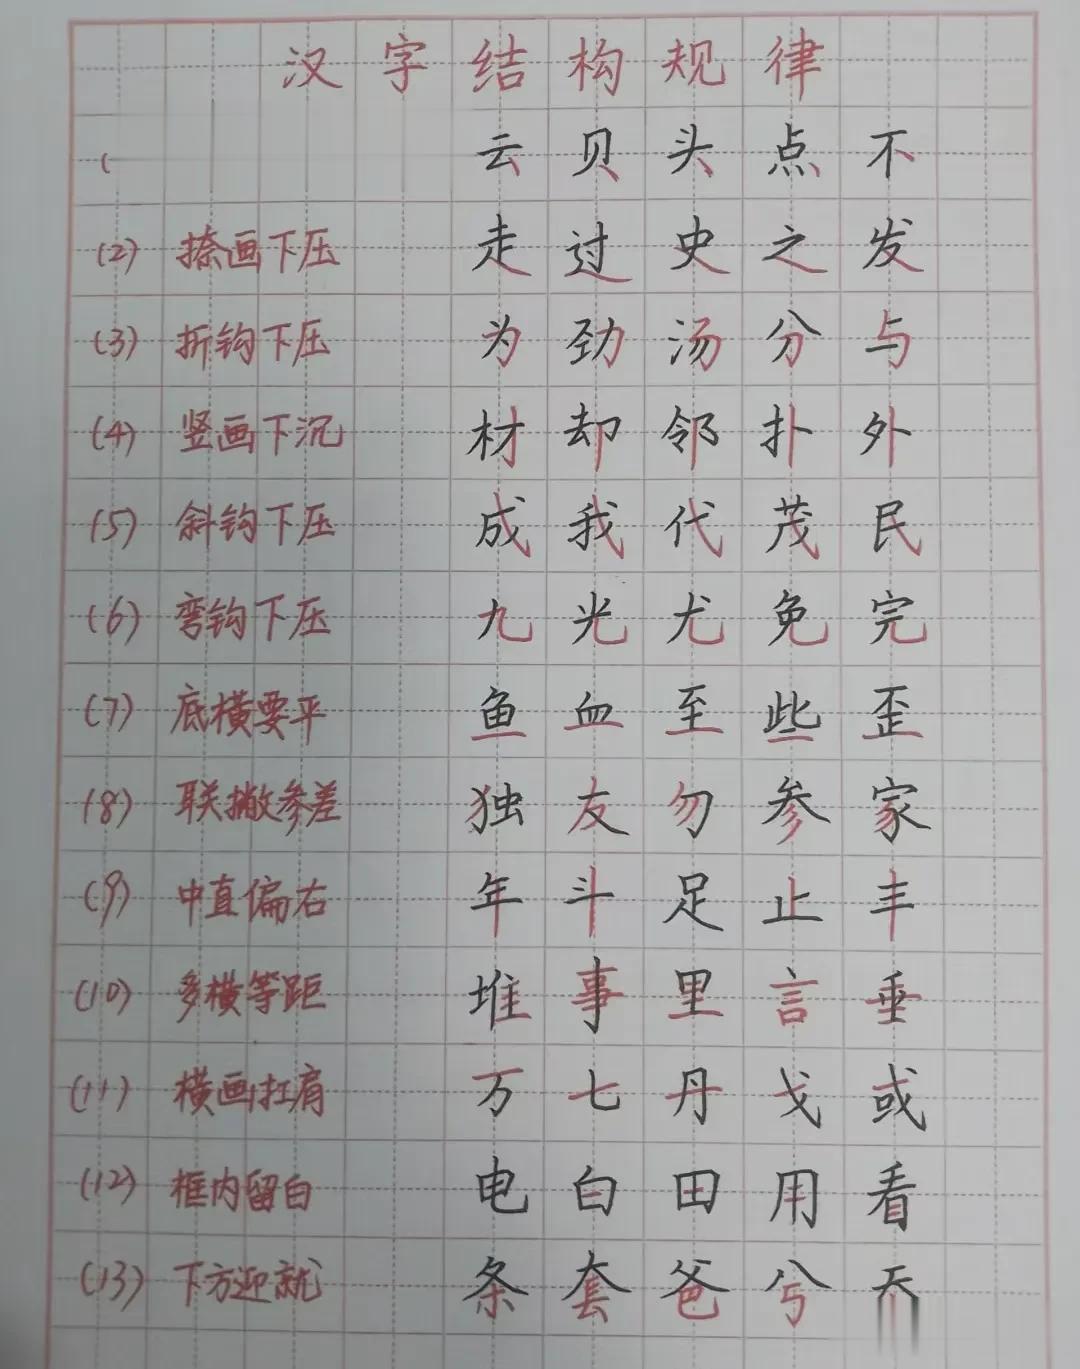 汉字结构规律
( 云贝头点不
(2) 捺画下压 走过史之发
(3) 折钩下压 为劲汤分与
(4) 竖画下沉 材却邻扑外
(5) 斜钩下压 成我代茂民
(6) 弯钩下压 九光尤免完
(7) 底横要平 鱼血至些歪
(8) 联撇参差 独友勿参家
(9) 中直偏右 年斗足止丰
(10) 多横等距 堆事里言垂
(11) 横画扛肩 万七丹戈或
(12) 框内留白 电白田用看
(13) 下方迎就 条套爸兮